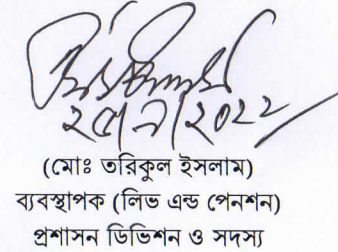 (মোঃ তরিকুল ইসলাম)
ব্যবস্থাপক (লিভ এন্ড পেনশন)
প্রশাসন ডিভিশন ও সদস্য